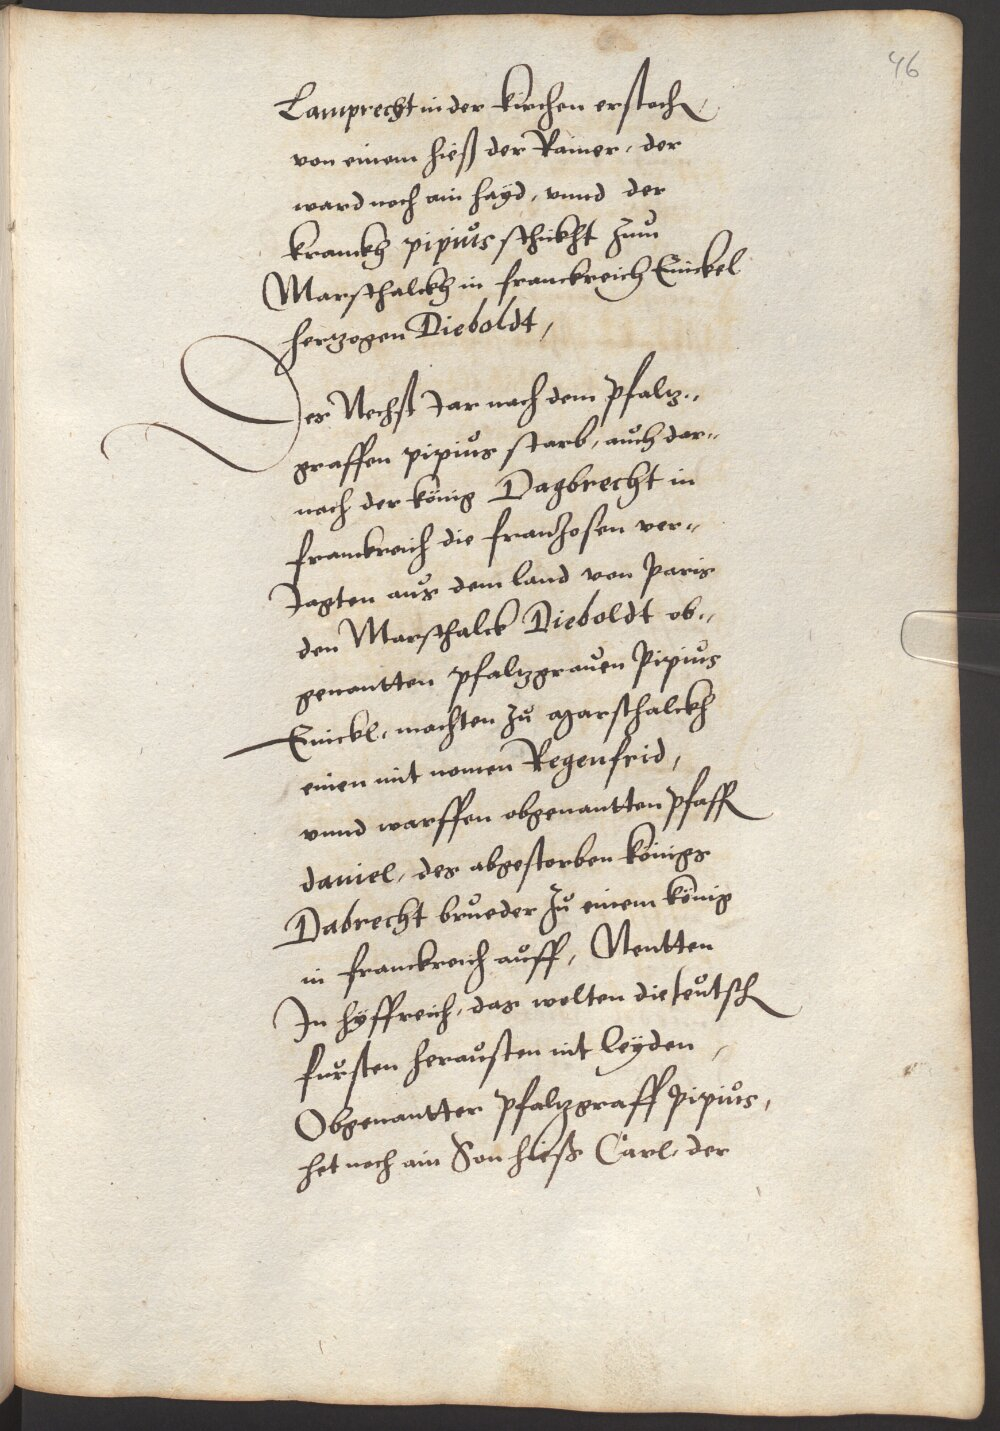 46
Lamprecht in der kirchen erstoch,
von einem hieß der Rainer, der
ward noch ain hayd, vnnd der
kranckh pipius schickht zum
Marschalckh in franckreich Einickel
hertzogen Dieboldt,
Des Nechst Jar nach dem pfaltz-,
graffen pipius starb, auch dar-
nach der könig Dagbrecht in
franckreich die franzosen ver-
Jagten aus dem land von Paris
den Marschalck Dieboldt ob-
genantten pfaltzgrauen Pipius
Einickl, machten zu Marschalckh
einen mit nomen Regenfrid,
vnnd warffen obgenantten pfaff
daniel, des abgestorben königs
Dabrecht brueder zu einem könig
in franckreich auff, Nentten
In hylffreich, das wolten die teutsch
fursten herausten nit leyden,
Obgenantter pfaltzgraff Pipius,
het noch ain Son hieß Carl, der